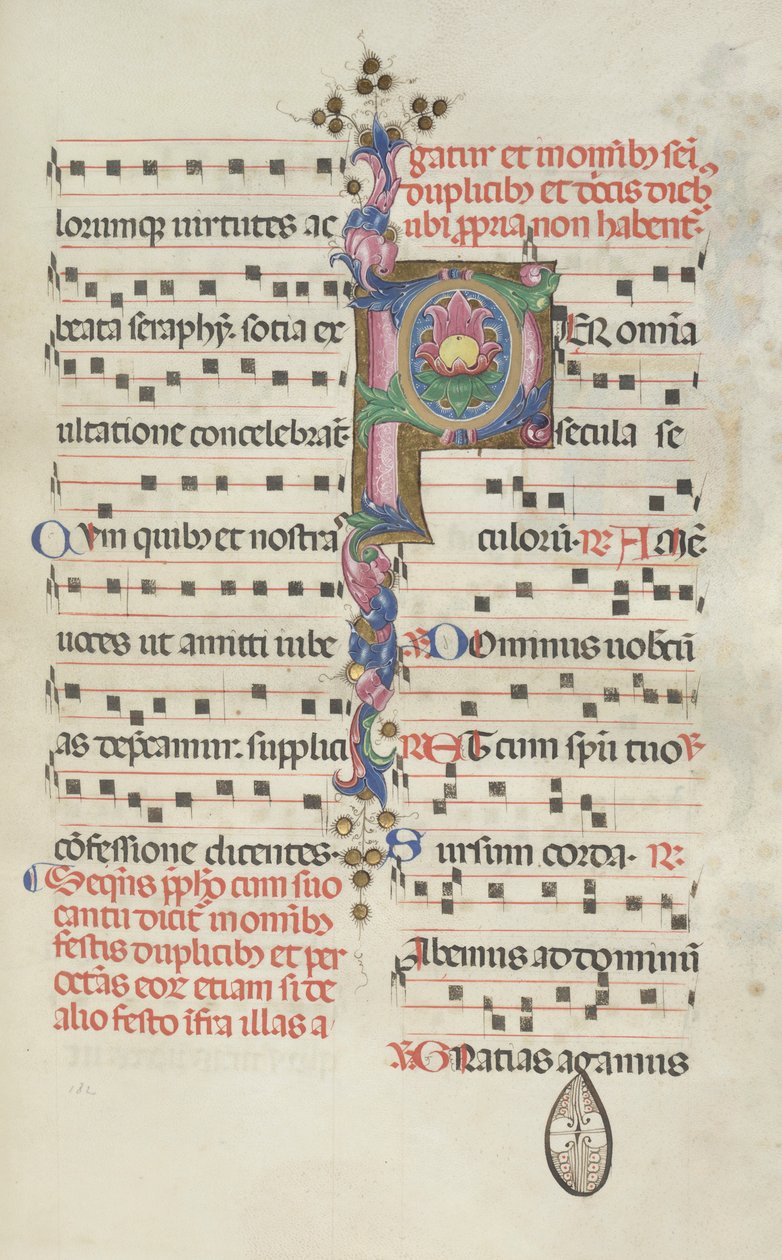 lorumq̃ uirtutes ac
beata seraphỹ. sotia ex
ultatione concelebrãt.
Qum quib₉ et nostras
uoces ut amitti iube
as dep̃camur. supplici
cõfessione dicentes.
Sequẽs p̱fatio cum suo
cantu dicit᷑ in omnib₉
festis duplicib₉ et per
octãs eoꝝ etiam si de
alio festo ĩfra illas a
182
gatur et in omnib₉ fe
duplicib₉ et
ubi ꝓpria non habent᷑.
PER omnia
secula se
culorũ. ℟. Amẽ.
Dominus uobiscũ
℟. Et cum spũ tuo ℣
Sursum corda. ℟.
Abemus ad dominũ
℣. Gratias agamus